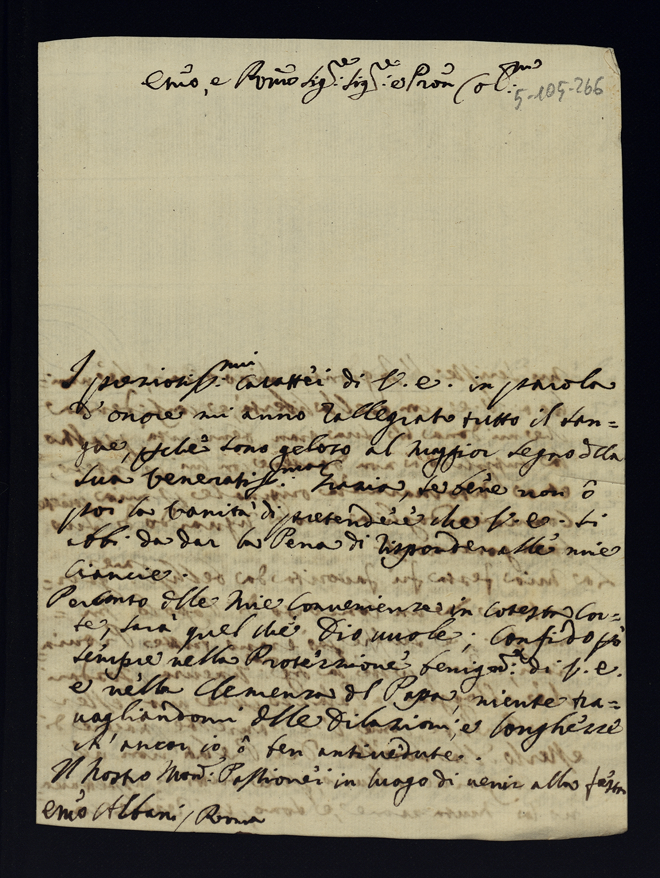 Emo, e Rmo Sigre: Sigre: e Pron Colmo:
5-105-266
I preziosissmi: caratteri di V. E. in parola
d'onore mi anno rallegrato tutto il san=
gue, perche sono geloso al maggior segno della
sua veneratissma: Grazia, se bene non ò
poi la vanità di pretendere che V. E. si
abbi da dar la Pena di risponder alle mie
ciancie.
Per conto delle mie convenienze in cotesta Cor=
te, sarà quel che Dio vuole; Confido pò
sempre nella Protezzione benigma: di V. E.
e nella Clemenza del Papa, niente tra=
vagliandomi delle dilazioni, e longhezze
ch'ancor io ò ben antivedute.
Il nostro Monr: Passionei in luogo di venir alla festa
Emo Albani / Roma